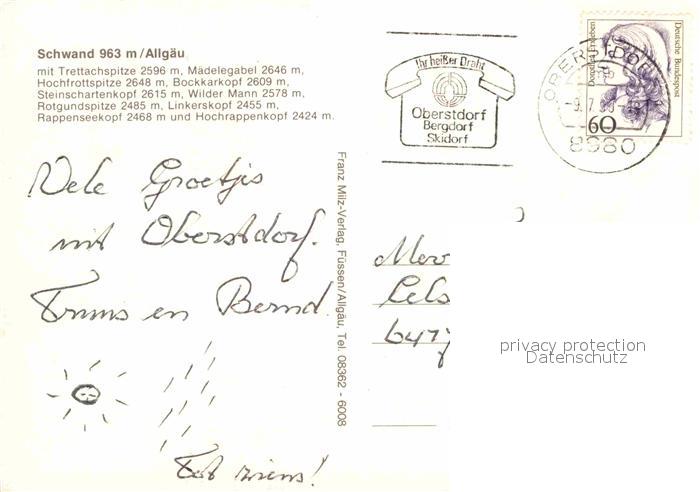 Schwand 963 m/Allgäu
mit Trettachspitze 2596 m, Mädelegabel 2646 m,
Hochfrottspitze 2648 m, Bockkarkopf 2609 m,
Steinschartenkopf 2615 m, Wilder Mann 2578 m,
Rotgundspitze 2485 m, Linkerskopf 2455 m,
Rappenseekopf 2468 m und Hochrappenkopf 2424 m.
Ihr heißer Draht
Oberstdorf
Bergdorf
Skidorf
OBERSTDORF
8980
Deutsche Bundespost
60
Vele Groetjes
uit Oberstdorf.
Truus en Bernd
Tot ziens!
Franz Milz-Verlag, Füssen/Allgäu, Tel. 08362 - 6008
privacy protection
Datenschutz